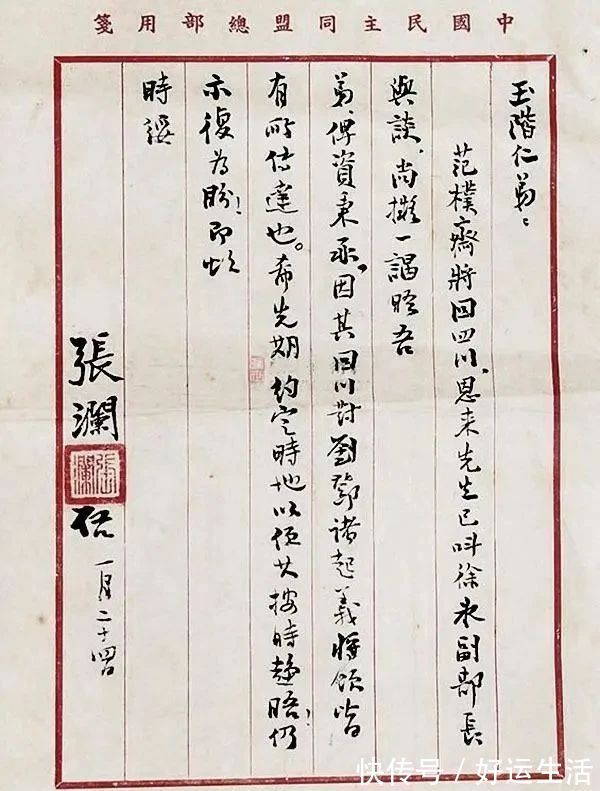 中國民主同盟總部用箋
玉階仁弟：
范樸齋將回四川，恩来先生已叫徐冰副部長
與談，尚擬一謁晤吾
弟，俾資秉承，因其回川對劉鄧諸起義將領皆
有所傳達也。希先期約定時地以便其按時趨晤！仍
示復為盼！即頌
時綏
張瀾
張瀾
啓
一月二十四
快传号／好运生活